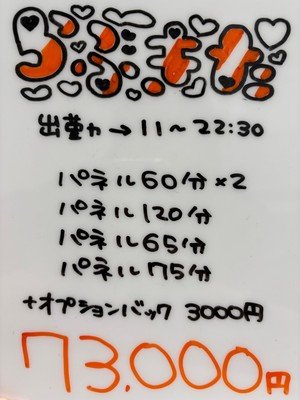 出勤→11〜22:30
パネル60分×2
パネル120分
パネル65分
パネル75分
+オプションバック 3000円
73,000円